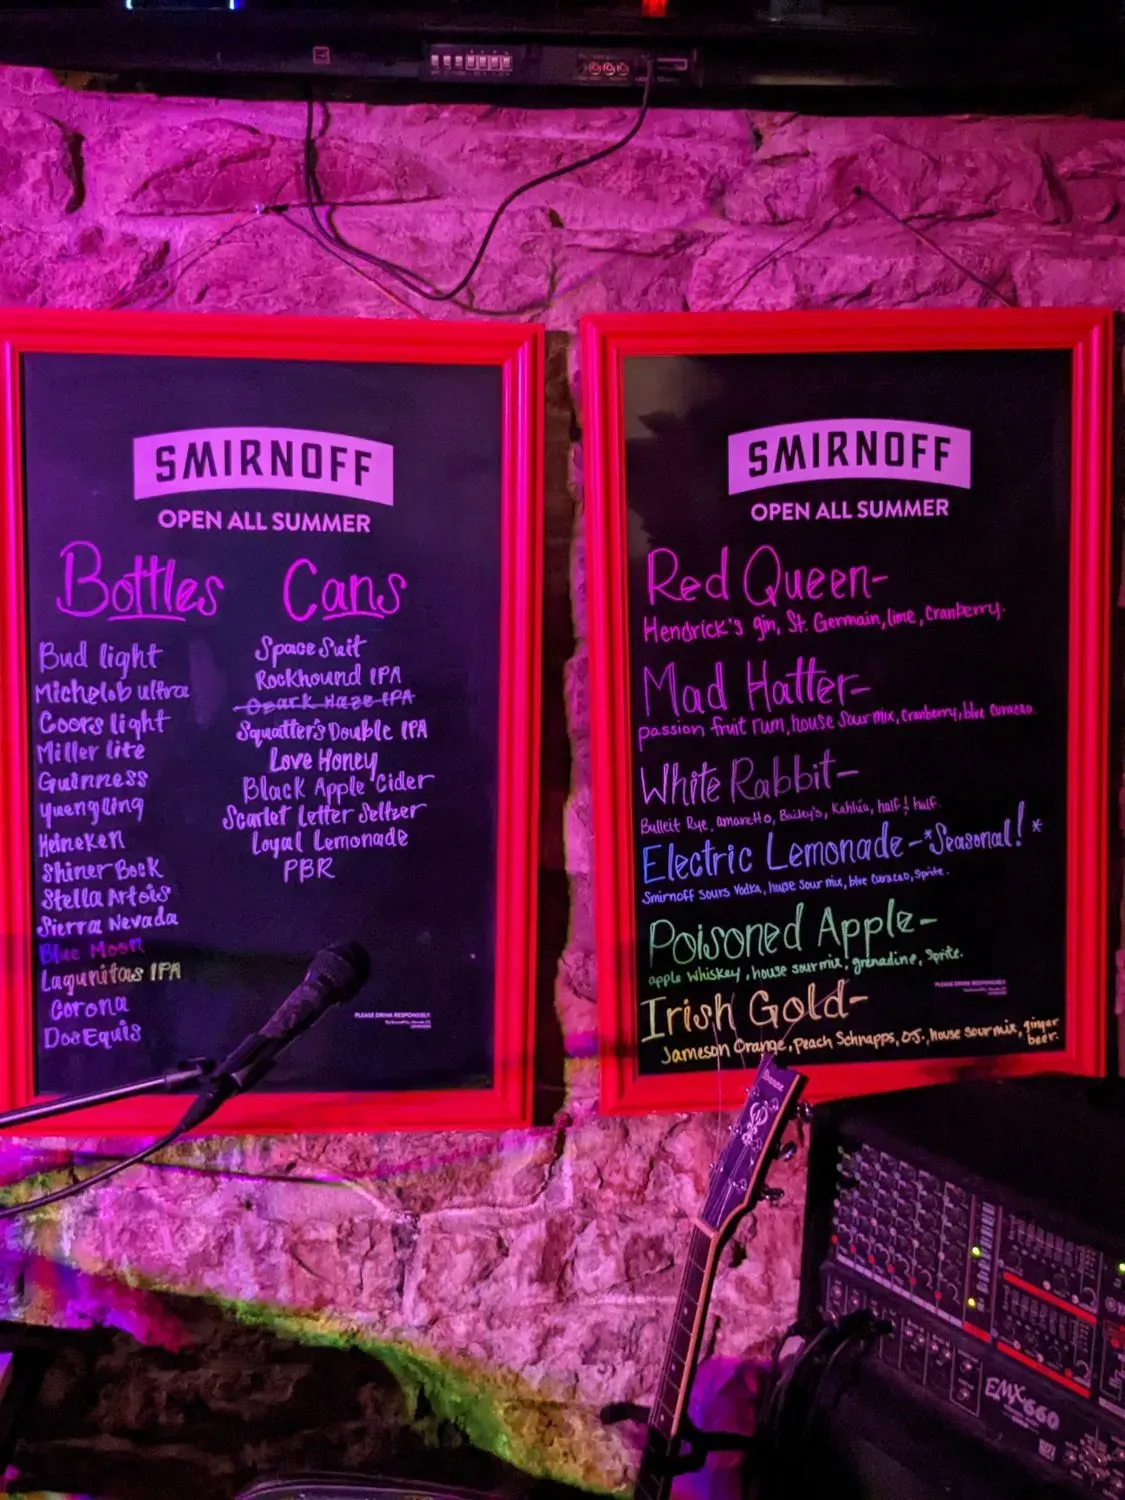 SMIRNOFF
OPEN ALL SUMMER
Bottles
Bud light
Michelob ultra
Coors light
Miller lite
Guinness
Yuengling
Heineken
Shiner Bock
Stella Artois
Sierra Nevada
Blue Moon
Lagunitas IPA
Corona
Dos Equis
Cans
Space Suit
Rockhound IPA
Ozark Haze IPA
Squatter's Double IPA
Love Honey
Black Apple Cider
Scarlet Letter Seltzer
Loyal Lemonade
PBR
PLEASE DRINK RESPONSIBLY.
SMIRNOFF
OPEN ALL SUMMER
Red Queen-
Hendrick's gin, St. Germain, lime, Cranberry.
Mad Hatter-
passion fruit rum, house sour mix, Cranberry, blue Curacao.
White Rabbit-
Bulleit Rye, amaretto, Bailey's, Kahlúa, half & half.
Electric Lemonade-*Seasonal!*
Smirnoff sours Vodka, house sour mix, blue Curacao, Sprite.
Poisoned Apple-
apple whiskey, house sour mix, grenadine, Sprite.
PLEASE DRINK RESPONSIBLY.
Irish Gold-
Jameson Orange, Peach Schnapps, O.J., house sour mix, ginger
beer.
Ibanez
EMX 660